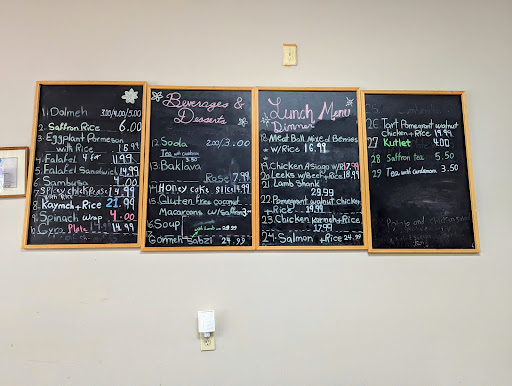 1. Dolmeh 3.00/4.00/5.00
2. Saffron Rice 6.00
3. Eggplant Parmeson
with Rice 16.99
4. Falafel 4 for 11.99
5. Falafel Sandwich 14.99
6. Sambusa 4.00
7. Spicy chick Rose 14.99
8. Kaymeh + Rice 21.99
9. Spinach wrap 4.00
Gyro Plate 14.99
Beverages &
Desserts
12. Soda 2.00/3.00
Tea with cardamom 3.50
13. Baklava
Rose 7.99
14. Honey cake slice 4.99
15. Gluten Free coconut
Macaroons w/saffron 3
16 Soup
with Lamb 29.99
Gormeh Sabzi 24.99
Lunch Menu
Dinner
18. Meat Ball Mixed Berries
w/Rice 16.99
19. Chicken Asiago w/R 17.99
20 Leeks w/Beef + Rice 18.99
21 Lamb Shank
29.99
22. Pomegranet walnut chicken
+ Rice 19.99
23. Chicken Kormeh + Rice
17.99
24. Salmon + Rice 24.99
26 Tart Pomegranet walnut
chicken + Rice 19.99
27 Kutlet 4.00
28 Saffron tea 5.50
29 Tea with cardamom 3.50